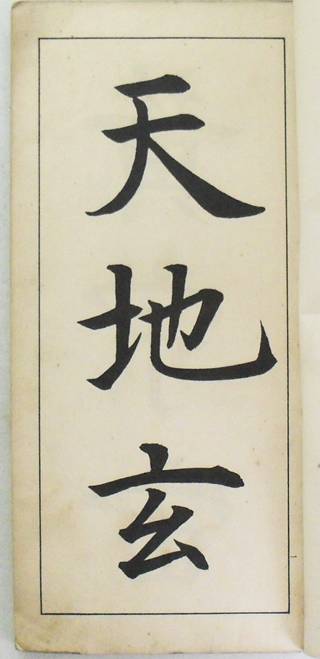 天地玄